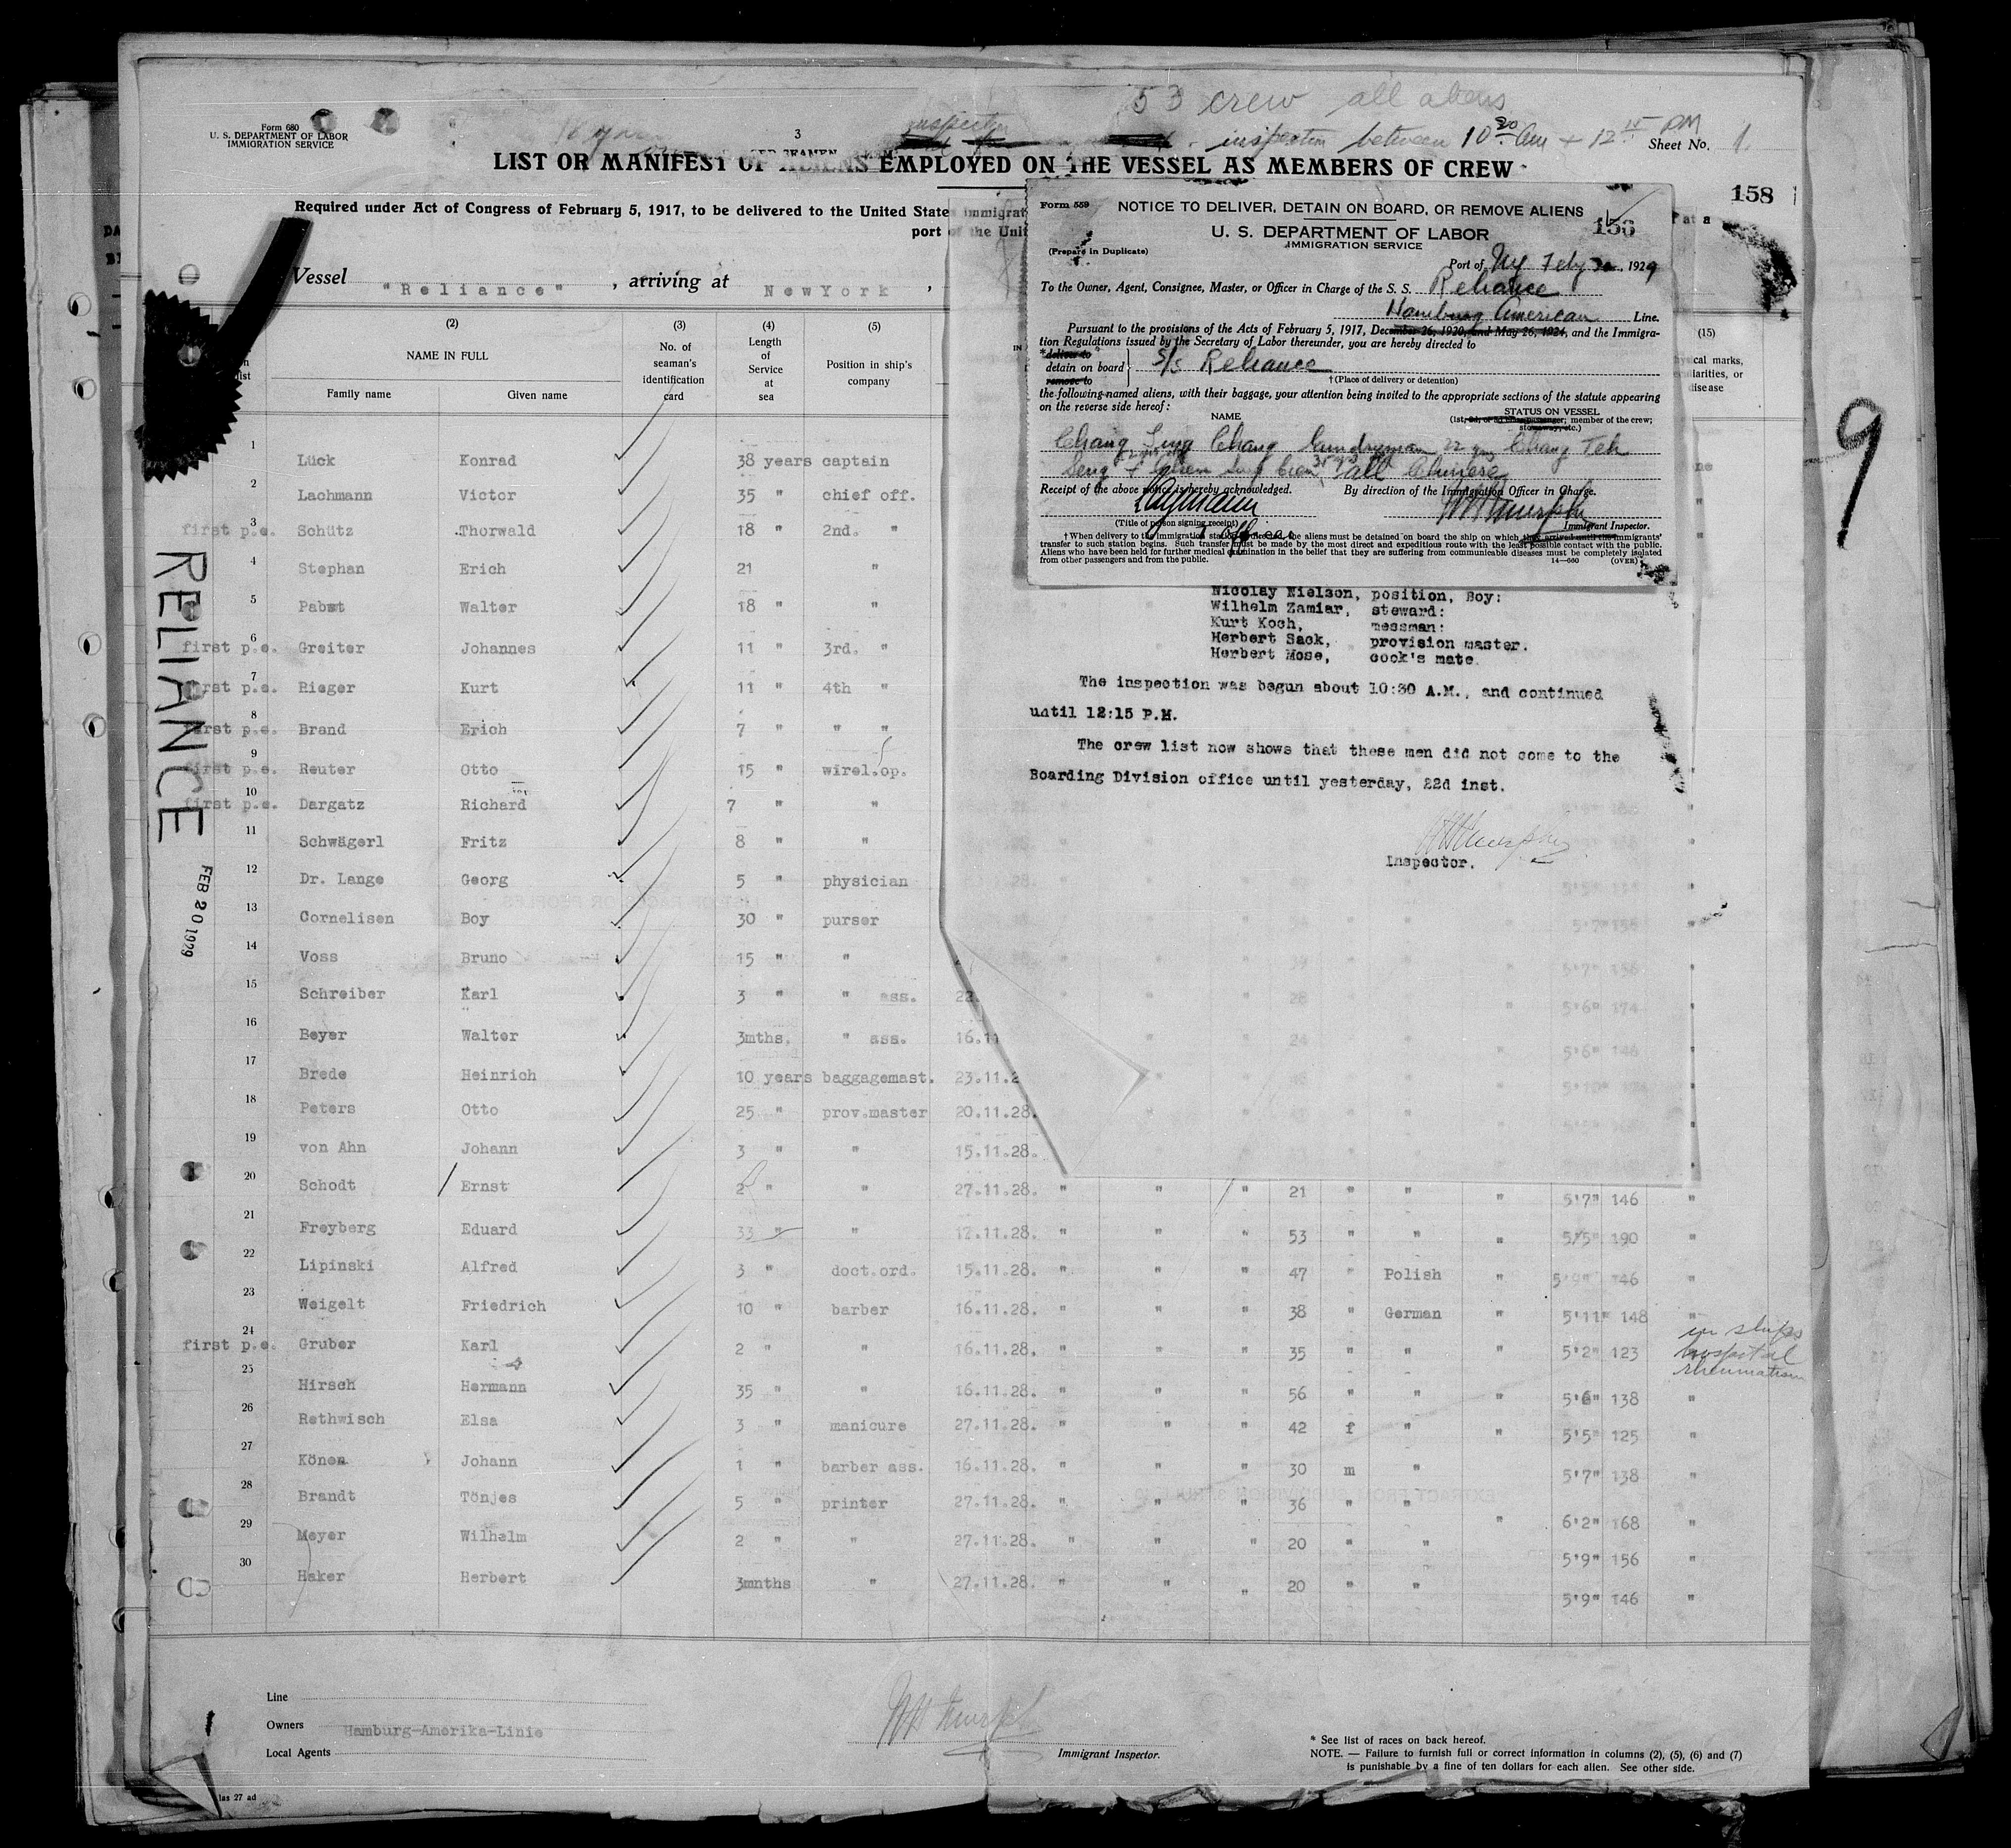 53 crew all aliens
inspection between 10 30 Am + 12 15 PM
Form 680
U. S. DEPARTMENT OF LABOR
IMMIGRATION SERVICE
3
Sheet No. 1.
LIST OR MANIFEST OF ALIENS EMPLOYED ON THE VESSEL AS MEMBERS OF CREW
158
Required under Act of Congress of February 5, 1917, to be delivered to the United State immigrat
port of the Unit
at a
Vessel "Reliance", arriving at NewYork,
Form 559
NOTICE TO DELIVER, DETAIN ON BOARD, OR REMOVE ALIENS
156
U. S. DEPARTMENT OF LABOR
IMMIGRATION SERVICE
(Prepare in Duplicate)
Port of NY Feby 20, 1929
To the Owner, Agent, Consignee, Master, or Officer in Charge of the S. S. Reliance
Hamburg American Line.
Pursuant to the provisions of the Acts of February 5, 1917, December 26, 1920, and May 26, 1924, and the Immigra-
tion Regulations issued by the Secretary of Labor thereunder, you are hereby directed to
*deliver to
detain on board S/S Reliance
remove to
†(Place of delivery or detention)
the following-named aliens, with their baggage, your attention being invited to the appropriate sections of the statute appearing
on the reverse side hereof:
NAME
STATUS ON VESSEL
(1st, 2d, or 3d class passenger; member of the crew;
stowaway, etc.)
Chang Chang Laundryman 22 yrs Chang Teh
Seng all Chinese
Receipt of the above notice is hereby acknowledged.
By direction of the Immigration Officer in Charge.
WH Murphy
(Title of person signing receipt)
Immigrant Inspector.
I Officer
†When delivery to the immigration station the aliens must be detained on board the ship on which they arrived until the immigrants'
transfer to such station begins. Such transfer must be made by the most direct and expeditious route with the least possible contact with the public.
Aliens who have been held for further medical examination in the belief that they are suffering from communicable diseases must be completely isolated
from other passengers and from the public.
14—660 (OVER)
Nicolay Nielson, position, Boy:
Wilhelm Zamiar, steward:
Kurt Koch, messman:
Herbert Sack, provision master.
Herbert Mose, cook's mate.
The inspection was begun about 10:30 A.M., and continued
until 12:15 P.M.
The crew list now shows that these men did not come to the
Boarding Division office until yesterday, 22d inst.
WH Murphy
Inspector.
9
RELIANCE
FEB 20 1929
(2) (3) (4) (5) (15)
NAME IN FULL
Family name Given name
No. of
seaman's
identification
card
Length
of
Service
at
sea
Position in ship's
company
cal marks,
larities, or
disease
1 Lück Konrad 38 years captain
2 Lachmann Victor 35 " chief off.
first p.e. 3 Schütz Thorwald 18 " 2nd. "
4 Stephan Erich 21 "
5 Pabst Walter 18 " "
first p.e. 6 Greiter Johannes 11 " 3rd. "
first p.e. 7 Rieger Kurt 11 " 4th "
first p.e. 8 Brand Erich 7 " " "
first p.e. 9 Reuter Otto 15 " wirel.op.
first p.e. 10 Dargatz Richard 7 " "
11 Schwägerl Fritz 8 " "
12 Dr. Lange Georg 5 " physician
13 Cornelisen Boy 30 " purser
14 Voss Bruno 15 " "
15 Schreiber Karl 3 " " ass. 22.
16 Beyer Walter 3mths. " ass. 16.11
17 Brede Heinrich 10 years baggagemast. 23.11.2
18 Peters Otto 25 " prov.master 20.11.28.
19 von Ahn Johann 3 " " 15.11.28.
20 Schodt Ernst 2 " " 27.11.28. " " " 21 " " " 5'7" 146 "
21 Freyberg Eduard 33 " " 12.11.28. " " " 53 " " " 5'5" 190 "
22 Lipinski Alfred 3 " doct.ord. 15.11.28. " " " 47 " Polish " 5'9" 146 "
23 Weigelt Friedrich 10 " barber 16.11.28. " " " 38 " German " 5'11" 148 "
first p.e. 24 Gruber Karl 2 " " 16.11.28. " " " 35 " " " 5'2" 123 in ships hospital rheumatism
25 Hirsch Hermann 35 " " 16.11.28. " " " 56 " " " 5'6" 138 "
26 Rethwisch Elsa 3 " manicure 27.11.28. " " " 42 f " " 5'5" 125 "
27 Könen Johann 1 " barber ass. 16.11.28. " " " 30 m " 5'7" 138 "
28 Brandt Tönjes 5 " printer 27.11.28. " " " 36 " " " 6'2" 168 "
29 Meyer Wilhelm 2 " " 27.11.28. " " " 20 " " 5'9" 156 "
30 Haker Herbert 3mnths " 27.11.28. " " " 20 " " 5'9" 146 "
Line
Owners Hamburg-Amerika-Linie
Local Agents
WH Murphy
Immigrant Inspector.
* See list of races on back hereof.
NOTE. — Failure to furnish full or correct information in columns (2), (5), (6) and (7)
is punishable by a fine of ten dollars for each alien. See other side.
las 27 ad